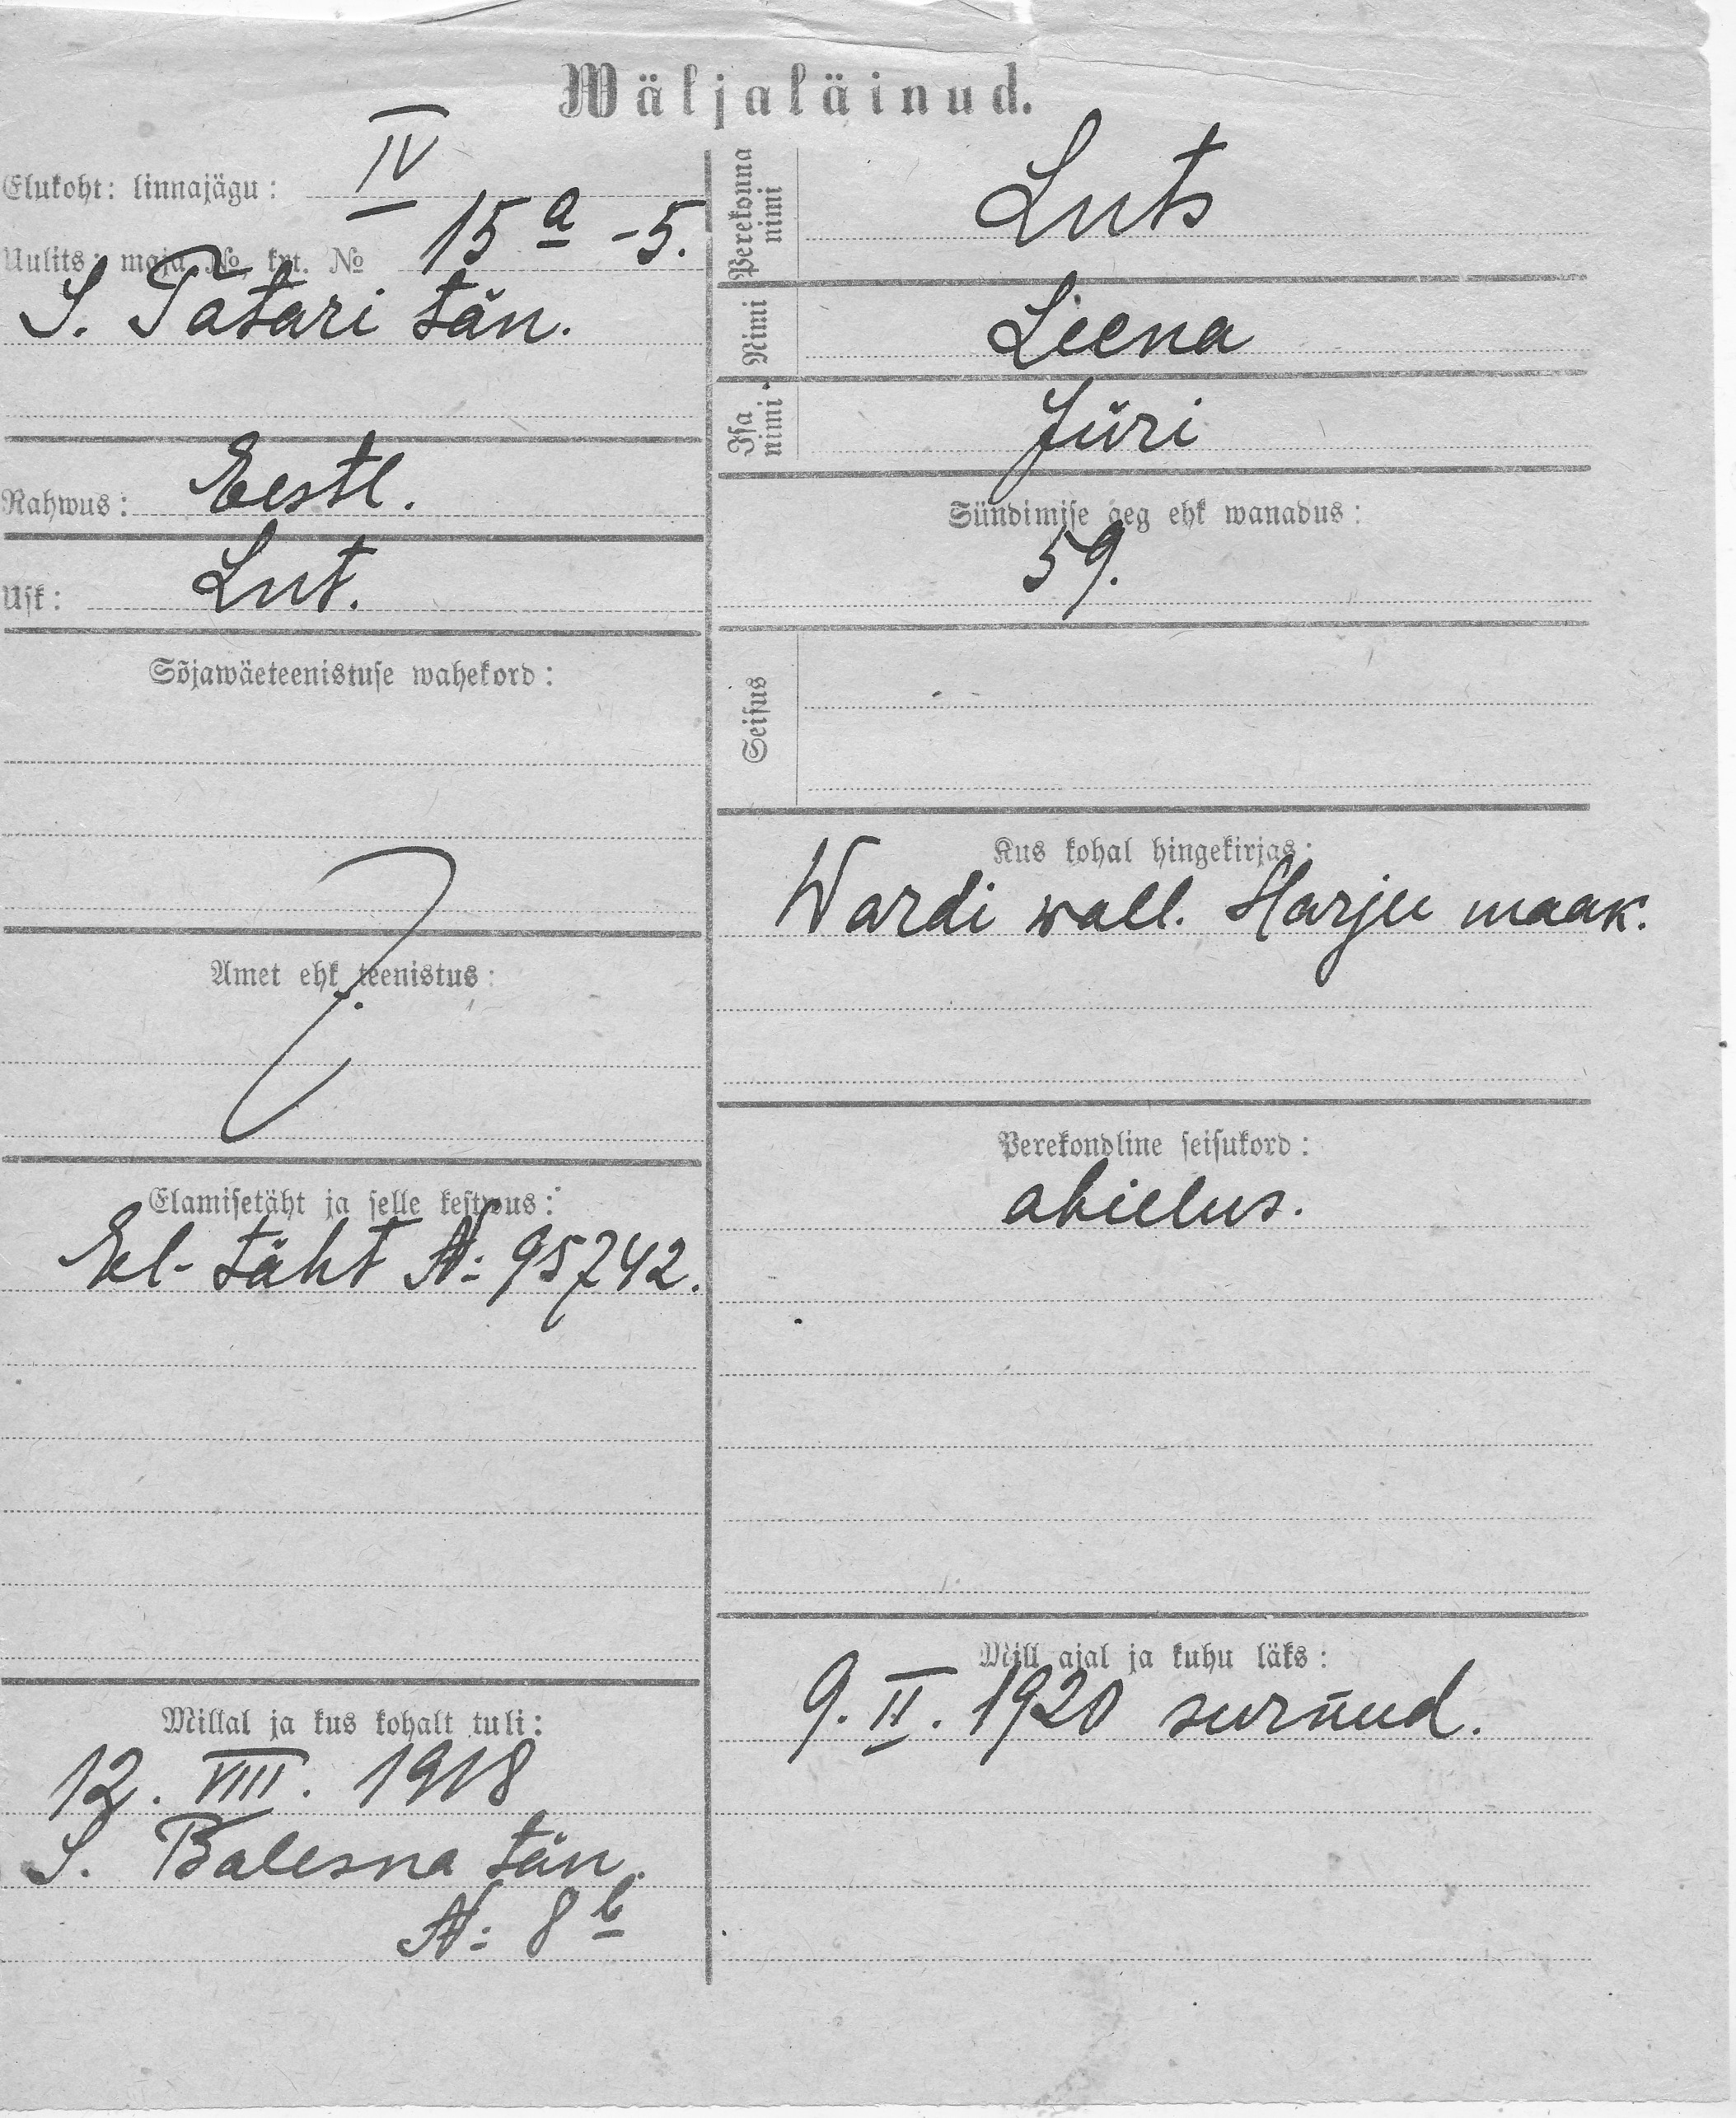 Wäljaläinud.
Elukoht: linnajägu: IV
Uulits: maja № krt. № 15 a - 5.
S. Tatari tän.
Rahwus: Eestl.
Usk: Lut.
Sõjawäeteenistuse wahekord:
Amet ehk teenistus:
Elamisetäht ja selle kestwus:
El- täht №: 95742.
Millal ja kus kohalt tuli:
12. VIII. 1918
S. Balesna tän.
№: 8 b
Perekonna nimi Luts
Nimi Leena
Isa nimi Jüri
Sündimise aeg ehk wanadus:
59.
Seisus
Kus kohal hingekirjas:
Wardi wall. Harju maak.
Perekondline seisukord:
abielus.
Mill ajal ja kuhu läks:
9. II. 1920 surnud.